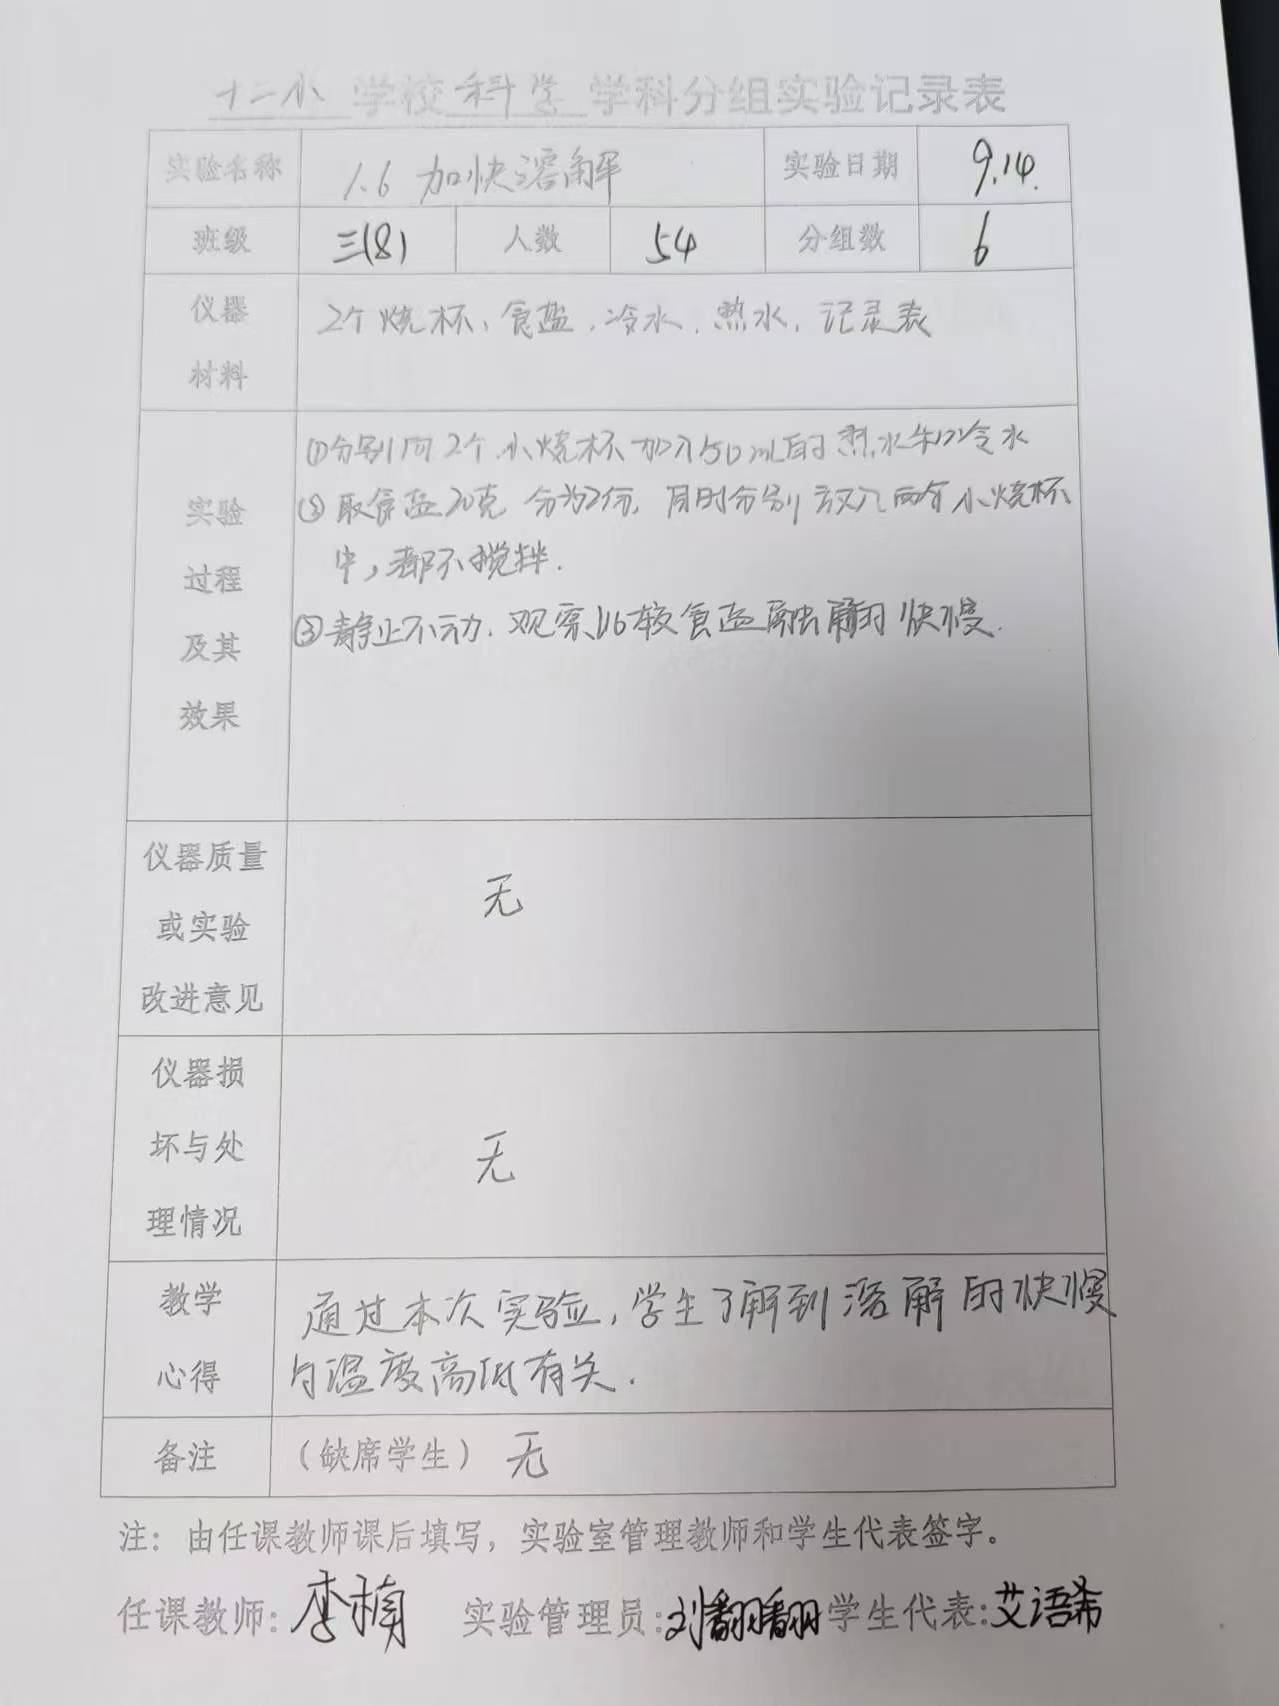 十二小 学校 科学 学科分组实验记录表
实验名称 1.6 加快溶解 实验日期 9.14.
班级 三(8) 人数 54 分组数 6
仪器材料 2个烧杯、食盐、冷水、热水、记录表
实验过程及其效果
①分别向2个小烧杯加入50mL的热水和冷水
②取食盐20克 分为2份,同时分别放入两个小烧杯
中,都不搅拌.
③静止不动.观察比较食盐融解的快慢.
仪器质量或实验改进意见 无
仪器损坏与处理情况 无
教学心得 通过本次实验,学生了解到溶解的快慢
与温度高低有关.
备注 (缺席学生) 无
注:由任课教师课后填写,实验室管理教师和学生代表签字。
任课教师:李楠 实验管理员:刘翻翻 学生代表:艾语希